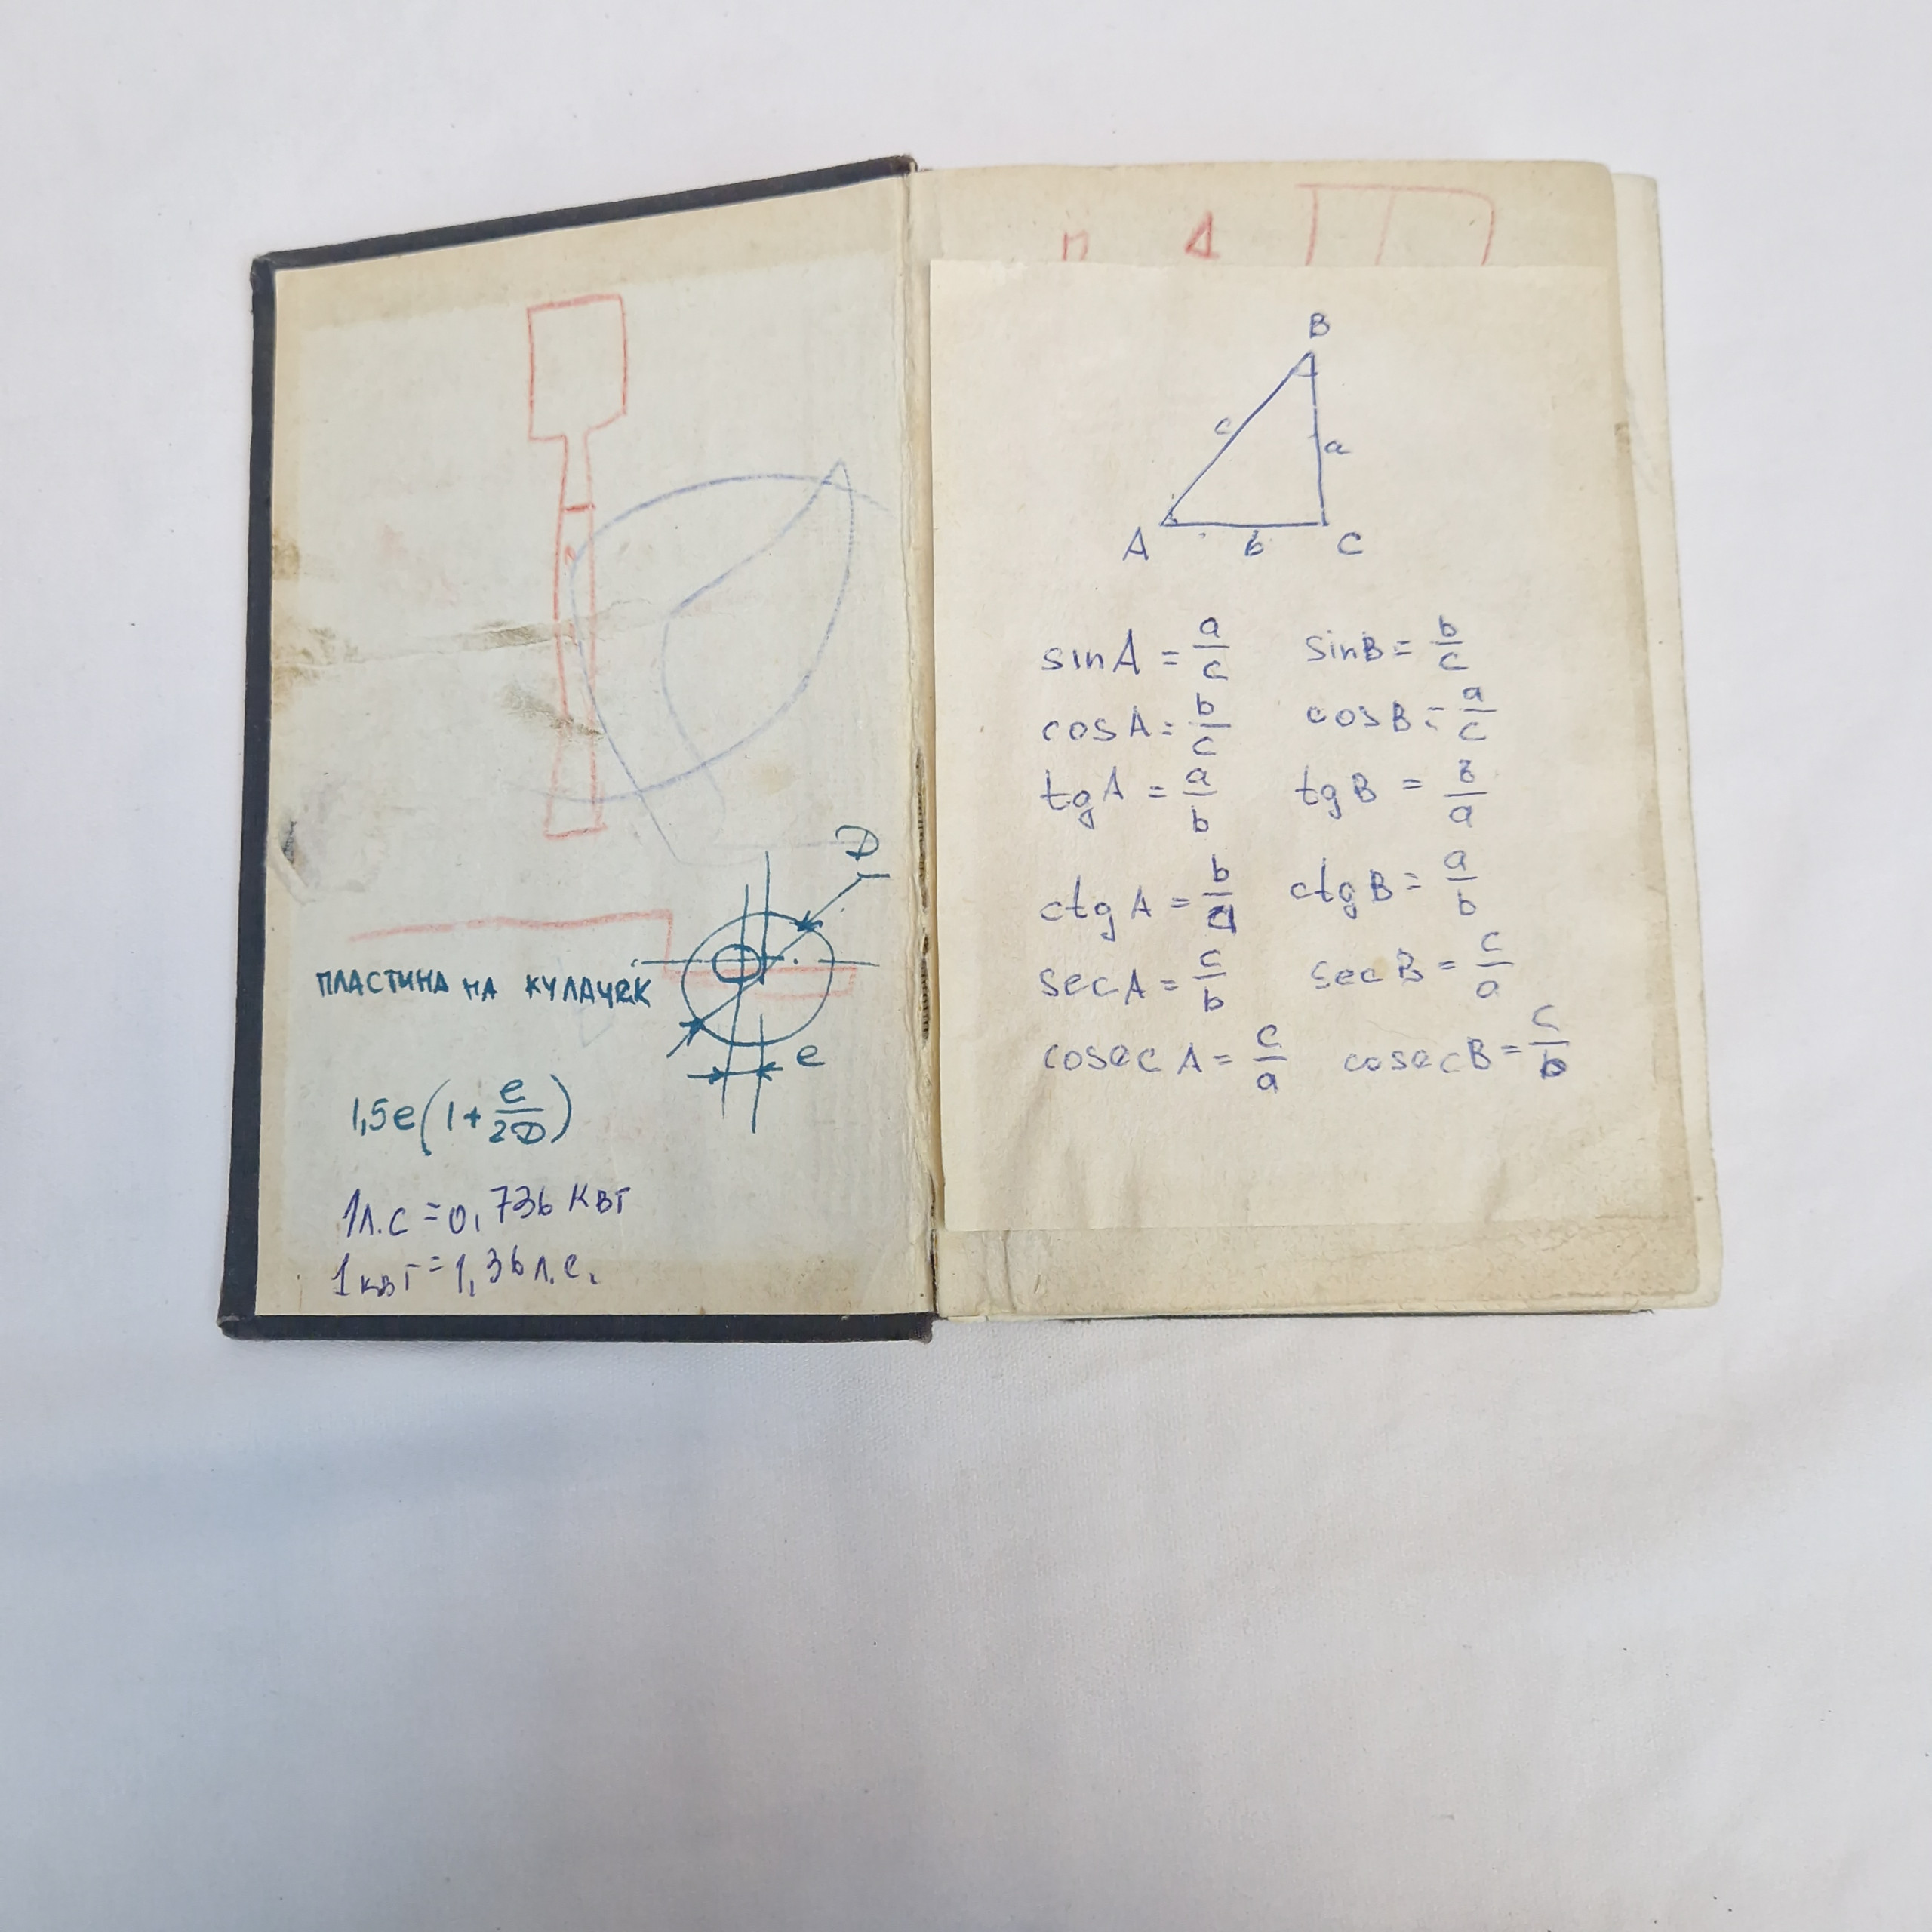 D
ПЛАСТИНА НА КУЛАЧЕК
e
1,5e(1+e/2D)
1л.с = 0,736 квт
1 квт = 1,36 л.с.
п Δ
B
c a
A b C
sinA = a/c sinB = b/c
cosA = b/c cosB = a/c
tgA = a/b tgB = в/a
ctgA = b/a ctgB = a/b
secA = c/b secB = c/a
cosecA = c/a cosecB = c/b